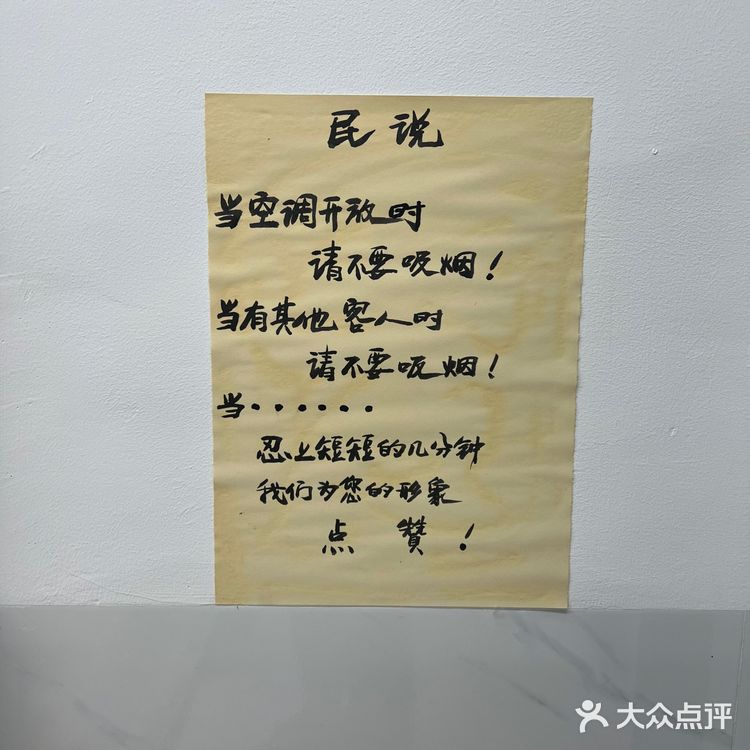 民说
当空调开放时
请不要吸烟！
当有其他客人时
请不要吸烟！
当······
忍上短短的几分钟
我们为您的形象
点赞！
大众点评